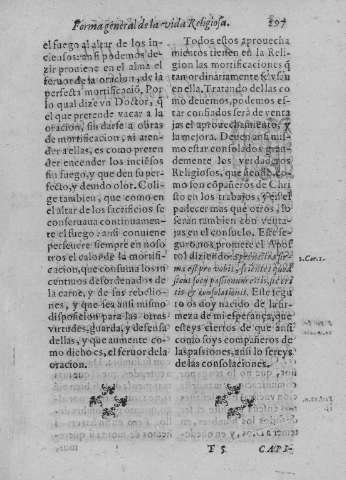 Forma general de la vida Religiosa. 297
el fuego al altar de los in-
ciensos: ansi podemos de-
zir prouiene en el alma el
feruor de la oracion, de la
perfecta mortificació. Por
lo qual dize vn Doctor, q̃
el que pretende vacar a la
oracion, sin darse a obras
de mortificacion, ni aten-
der a ellas, es como preten
der encender los inciésos
sin fuego, y que den su per-
fecto, y deuido olor. Coli-
ge tambien, que como en
el altar de los sacrificios se
conseruaua continuamen-
te el fuego: ansi conuiene
perseuere siempre en noso
tros el calor de la mortifi-
cacion, que consuma los in
centiuos desordenados de
la carne, y de sus rebellio-
nes, y que sea ansi mismo
disposicion para las otras
virtudes, guarda, y defensa
dellas, y que aumente co-
mo dicho es, el feruor de la
oracion.
Todos estos aprouecha
mientos tienen en la Reli-
gion las mortificaciones q̃
tan ordinariamente se vsan
en ella. Tratando dellas co
mo deuemos, podemos es-
tar confiados será de venta
jas el aprouechamiento, y
la mejora. Deuen ansi mis-
mo estar consolados gran-
demente los verdaderos
Religiosos, que
mo son cópañeros de Chri
sto en los trabajos, y en el
padecer mas que otros, lo
seran tambien con venta-
jas en el consuelo. Este se-
guro nos promete el Apos
tol diziendo:
1. Cor. 1.
ma est pro vobis, scientes quod
sicut socij passionum estis, eritis
et consolationis. Este segu
ro os doy nacido de la fir-
meza de mi esperança, que
esteys ciertos de que ansi
como soys compañeros de
las passiones, ansi lo sereys
de las consolaciones.
T 5 CAPI-